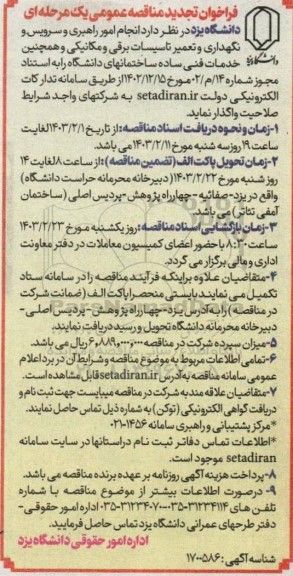 فراخوان تجدید مناقصه عمومی یک مرحله ای
دانشگاه یزد در نظر دارد انجام امور راهبری و سرویس و
نگهداری و تعمیر تاسیسات برقی و مکانیکی و همچنین
خدمات فنی ساده ساختمانهای دانشگاه را به استناد
مجوز شماره ۱۴/م/۰۲ مورخ ۱۴۰۲/۱۲/۱۵ از طریق سامانه تدارکات
الکترونیکی دولت setadiran.ir به شرکتهای واجد شرایط
صلاحیت واگذار نماید.
۱-زمان و نحوه دریافت اسناد مناقصه: از تاریخ ۱۴۰۳/۲/۱ لغایت
ساعت ۱۹ روز سه شنبه مورخ ۱۴۰۳/۲/۱۱ می باشد.
۲-زمان تحویل پاکت الف (تضمین مناقصه): از ساعت ۸ لغایت ۱۴
روز شنبه مورخ ۱۴۰۳/۲/۲۲ (دبیرخانه محرمانه حراست دانشگاه)
واقع در یزد-صفائیه-چهارراه پژوهش-پردیس اصلی (ساختمان
آمفی تئاتر) می باشد.
۳-زمان بازگشایی اسناد مناقصه: روز یکشنبه مورخ ۱۴۰۳/۲/۲۳
ساعت ۸:۳۰ با حضور اعضای کمیسیون معاملات در دفتر معاونت
اداری و مالی برگزار می گردد.
۴-متقاضیان علاوه بر اینکه فرآیند مناقصه را در سامانه ستاد
تکمیل می نمایند بایستی منحصرا پاکت الف (ضمانت شرکت
در مناقصه) را به آدرس یزد-چهارراه پژوهش-پردیس اصلی-
دبیرخانه محرمانه دانشگاه تحویل و رسید دریافت نمایند.
۵-میزان سپرده شرکت در مناقصه ۶,۸۸۹,۰۰۰,۰۰۰ ریال می باشد.
۶-تمامی اطلاعات مربوط به موضوع مناقصه و شرایط آن در برد اعلام
عمومی سامانه مناقصه به آدرس setadiran.ir قابل مشاهده است.
۷-متقاضیان علاقه مند به شرکت در مناقصه میبایست جهت ثبت نام و
دریافت گواهی الکترونیکی (توکن) به شماره ذیل تماس حاصل نمایند.
*مرکز پشتیبانی و راهبری سامانه ۱۴۵۶-۰۲۱
*اطلاعات تماس دفاتر ثبت نام در استانها در سایت سامانه
setadiran موجود است.
۸-پرداخت هزینه آگهی روزنامه بر عهده برنده مناقصه می باشد.
۹-درصورت اطلاعات بیشتر از موضوع مناقصه با شماره
تلفن های ۳۱۲۳۴۱۱۴-۰۳۵ و ۳۱۲۳۴۰۷۰-۰۳۵ اداره امور حقوقی-
دفتر طرحهای عمرانی دانشگاه یزد تماس حاصل فرمایید.
اداره امور حقوقی دانشگاه یزد
شناسه آگهی: ۱۷۰۰۵۸۶